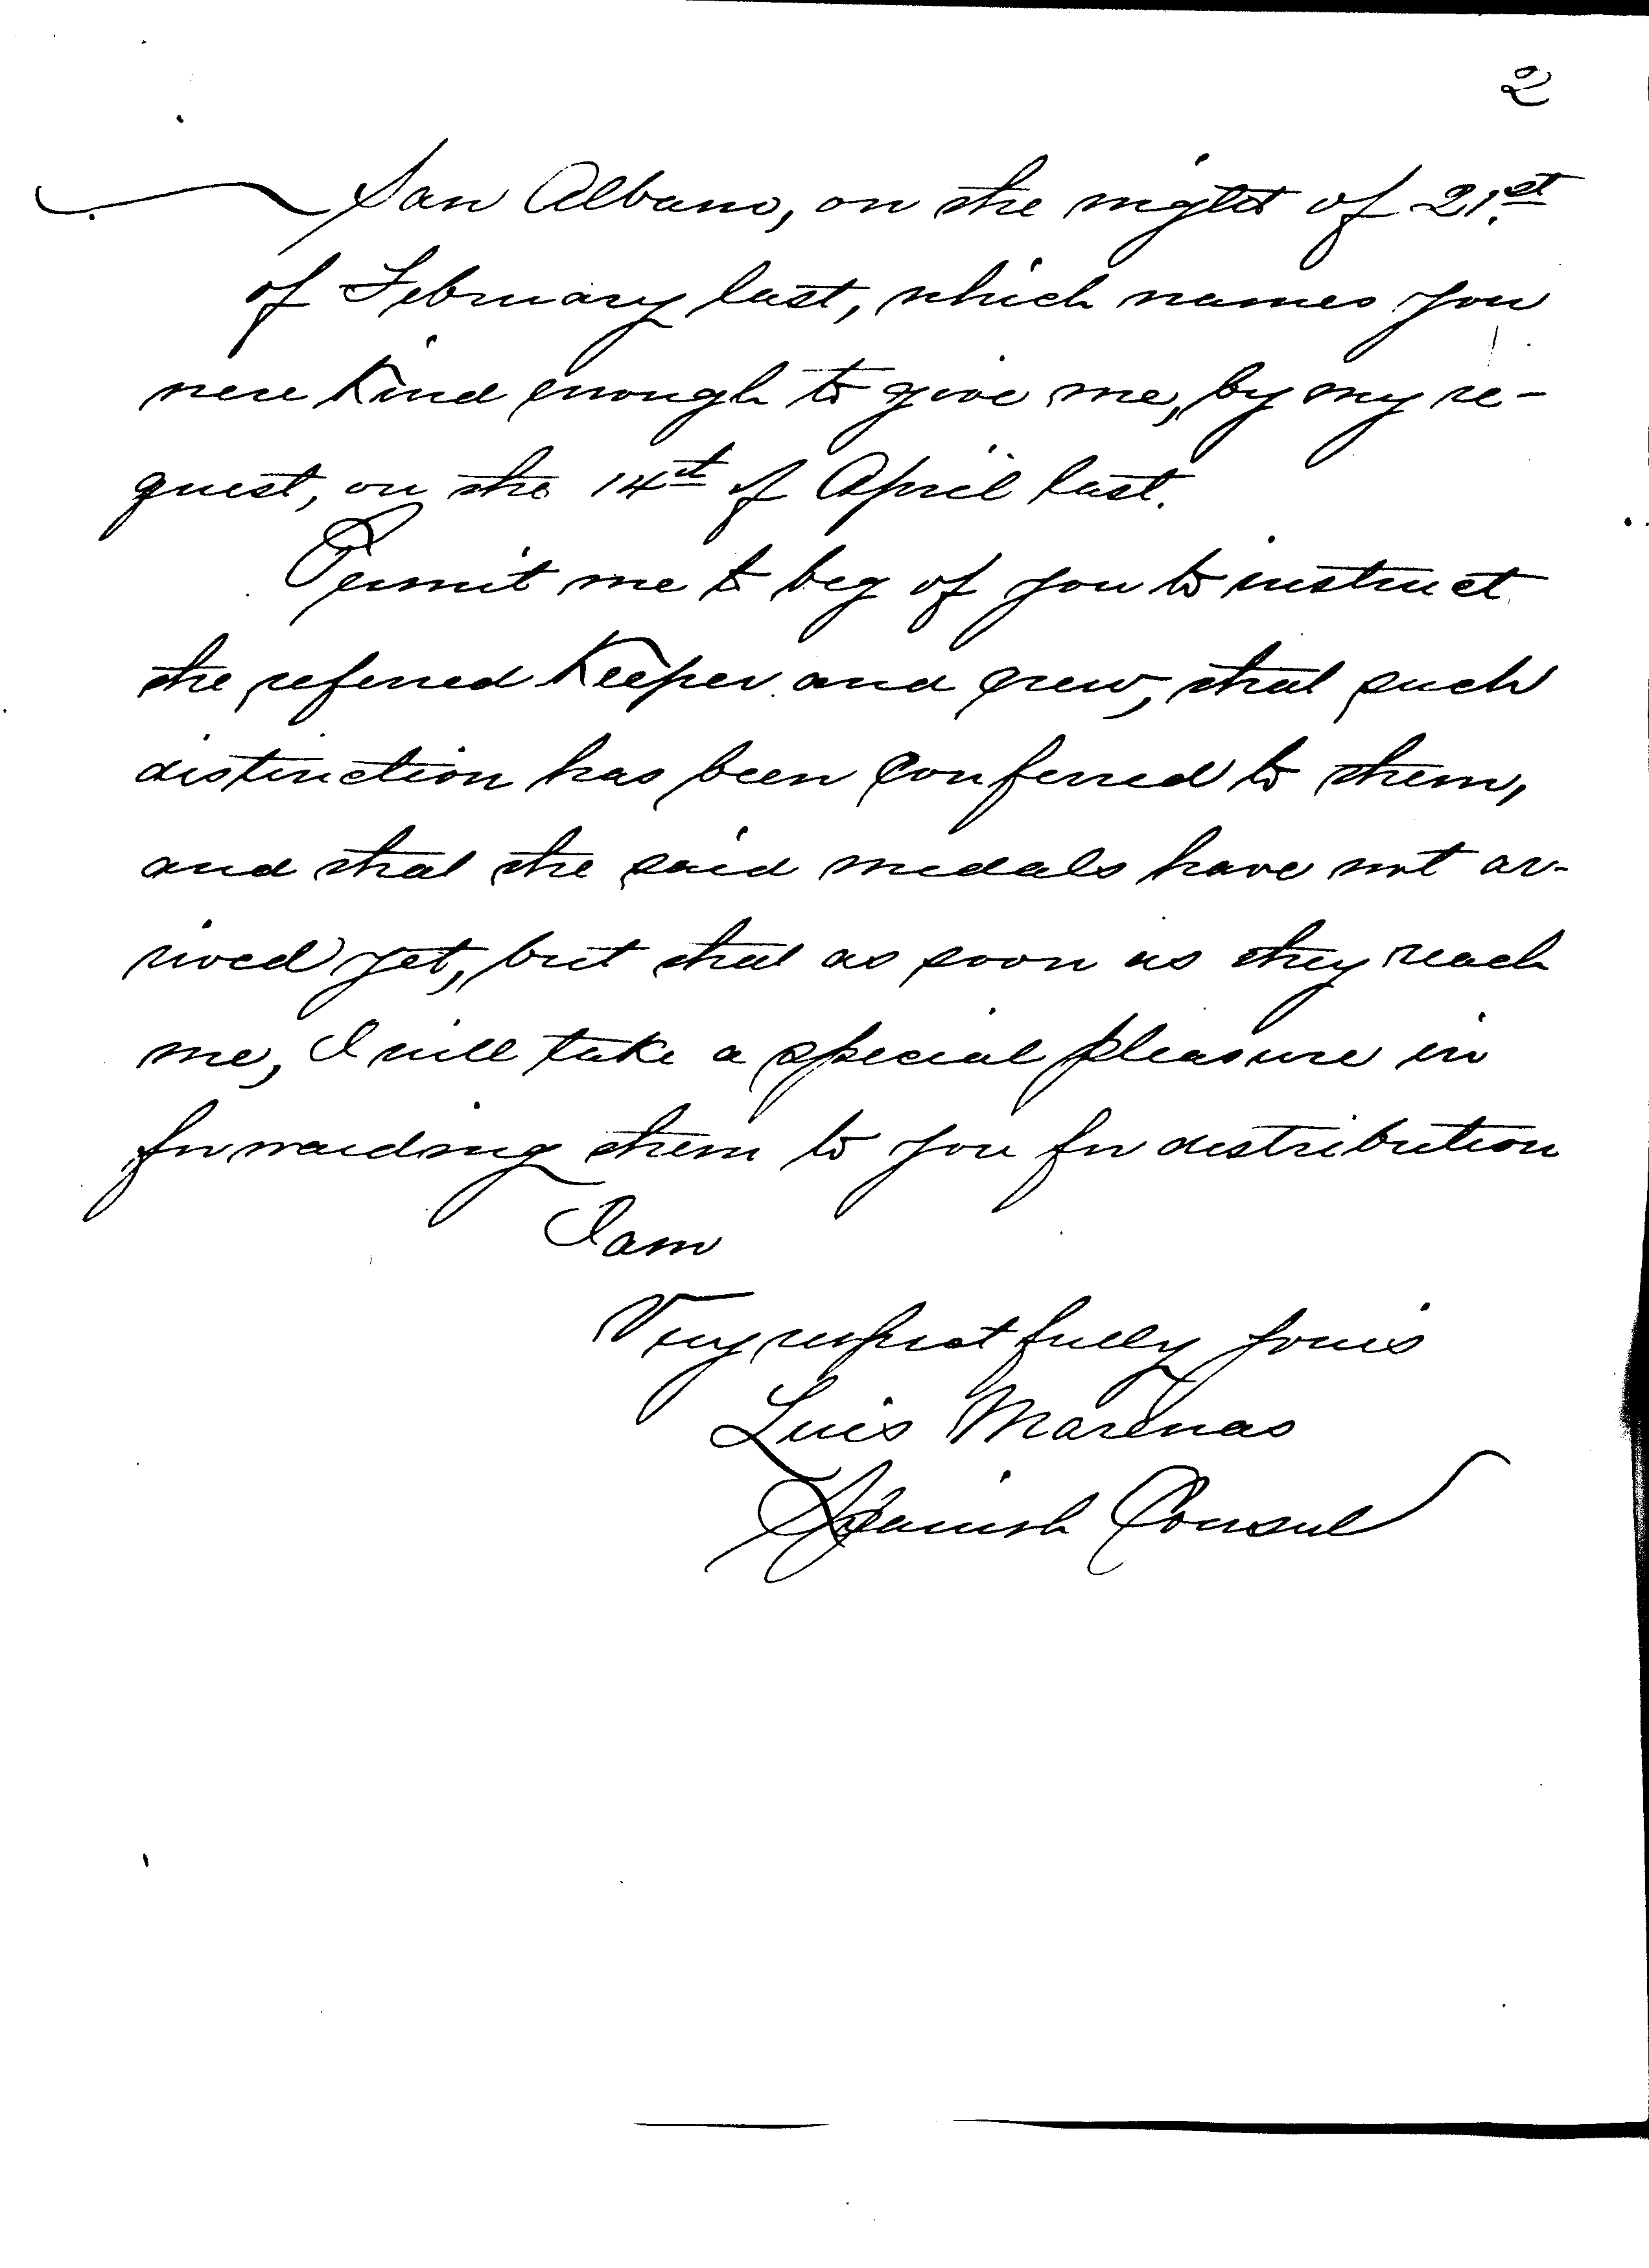 2
San Albano, on the night of 21st
of February last, which names you
were kind enough to give me, by my re-
quest, on the 14th of April last.
Permit me to beg of you to instruct
the referred Keeper and crew, that such
distinction has been conferred to them,
and that the said medals have not ar-
rived yet, but that as soon as they reach
me, I will take a special pleasure in
forwarding them to you for distribution
I am
Very respectfully yours
Luis Marinas
Spanish Consul